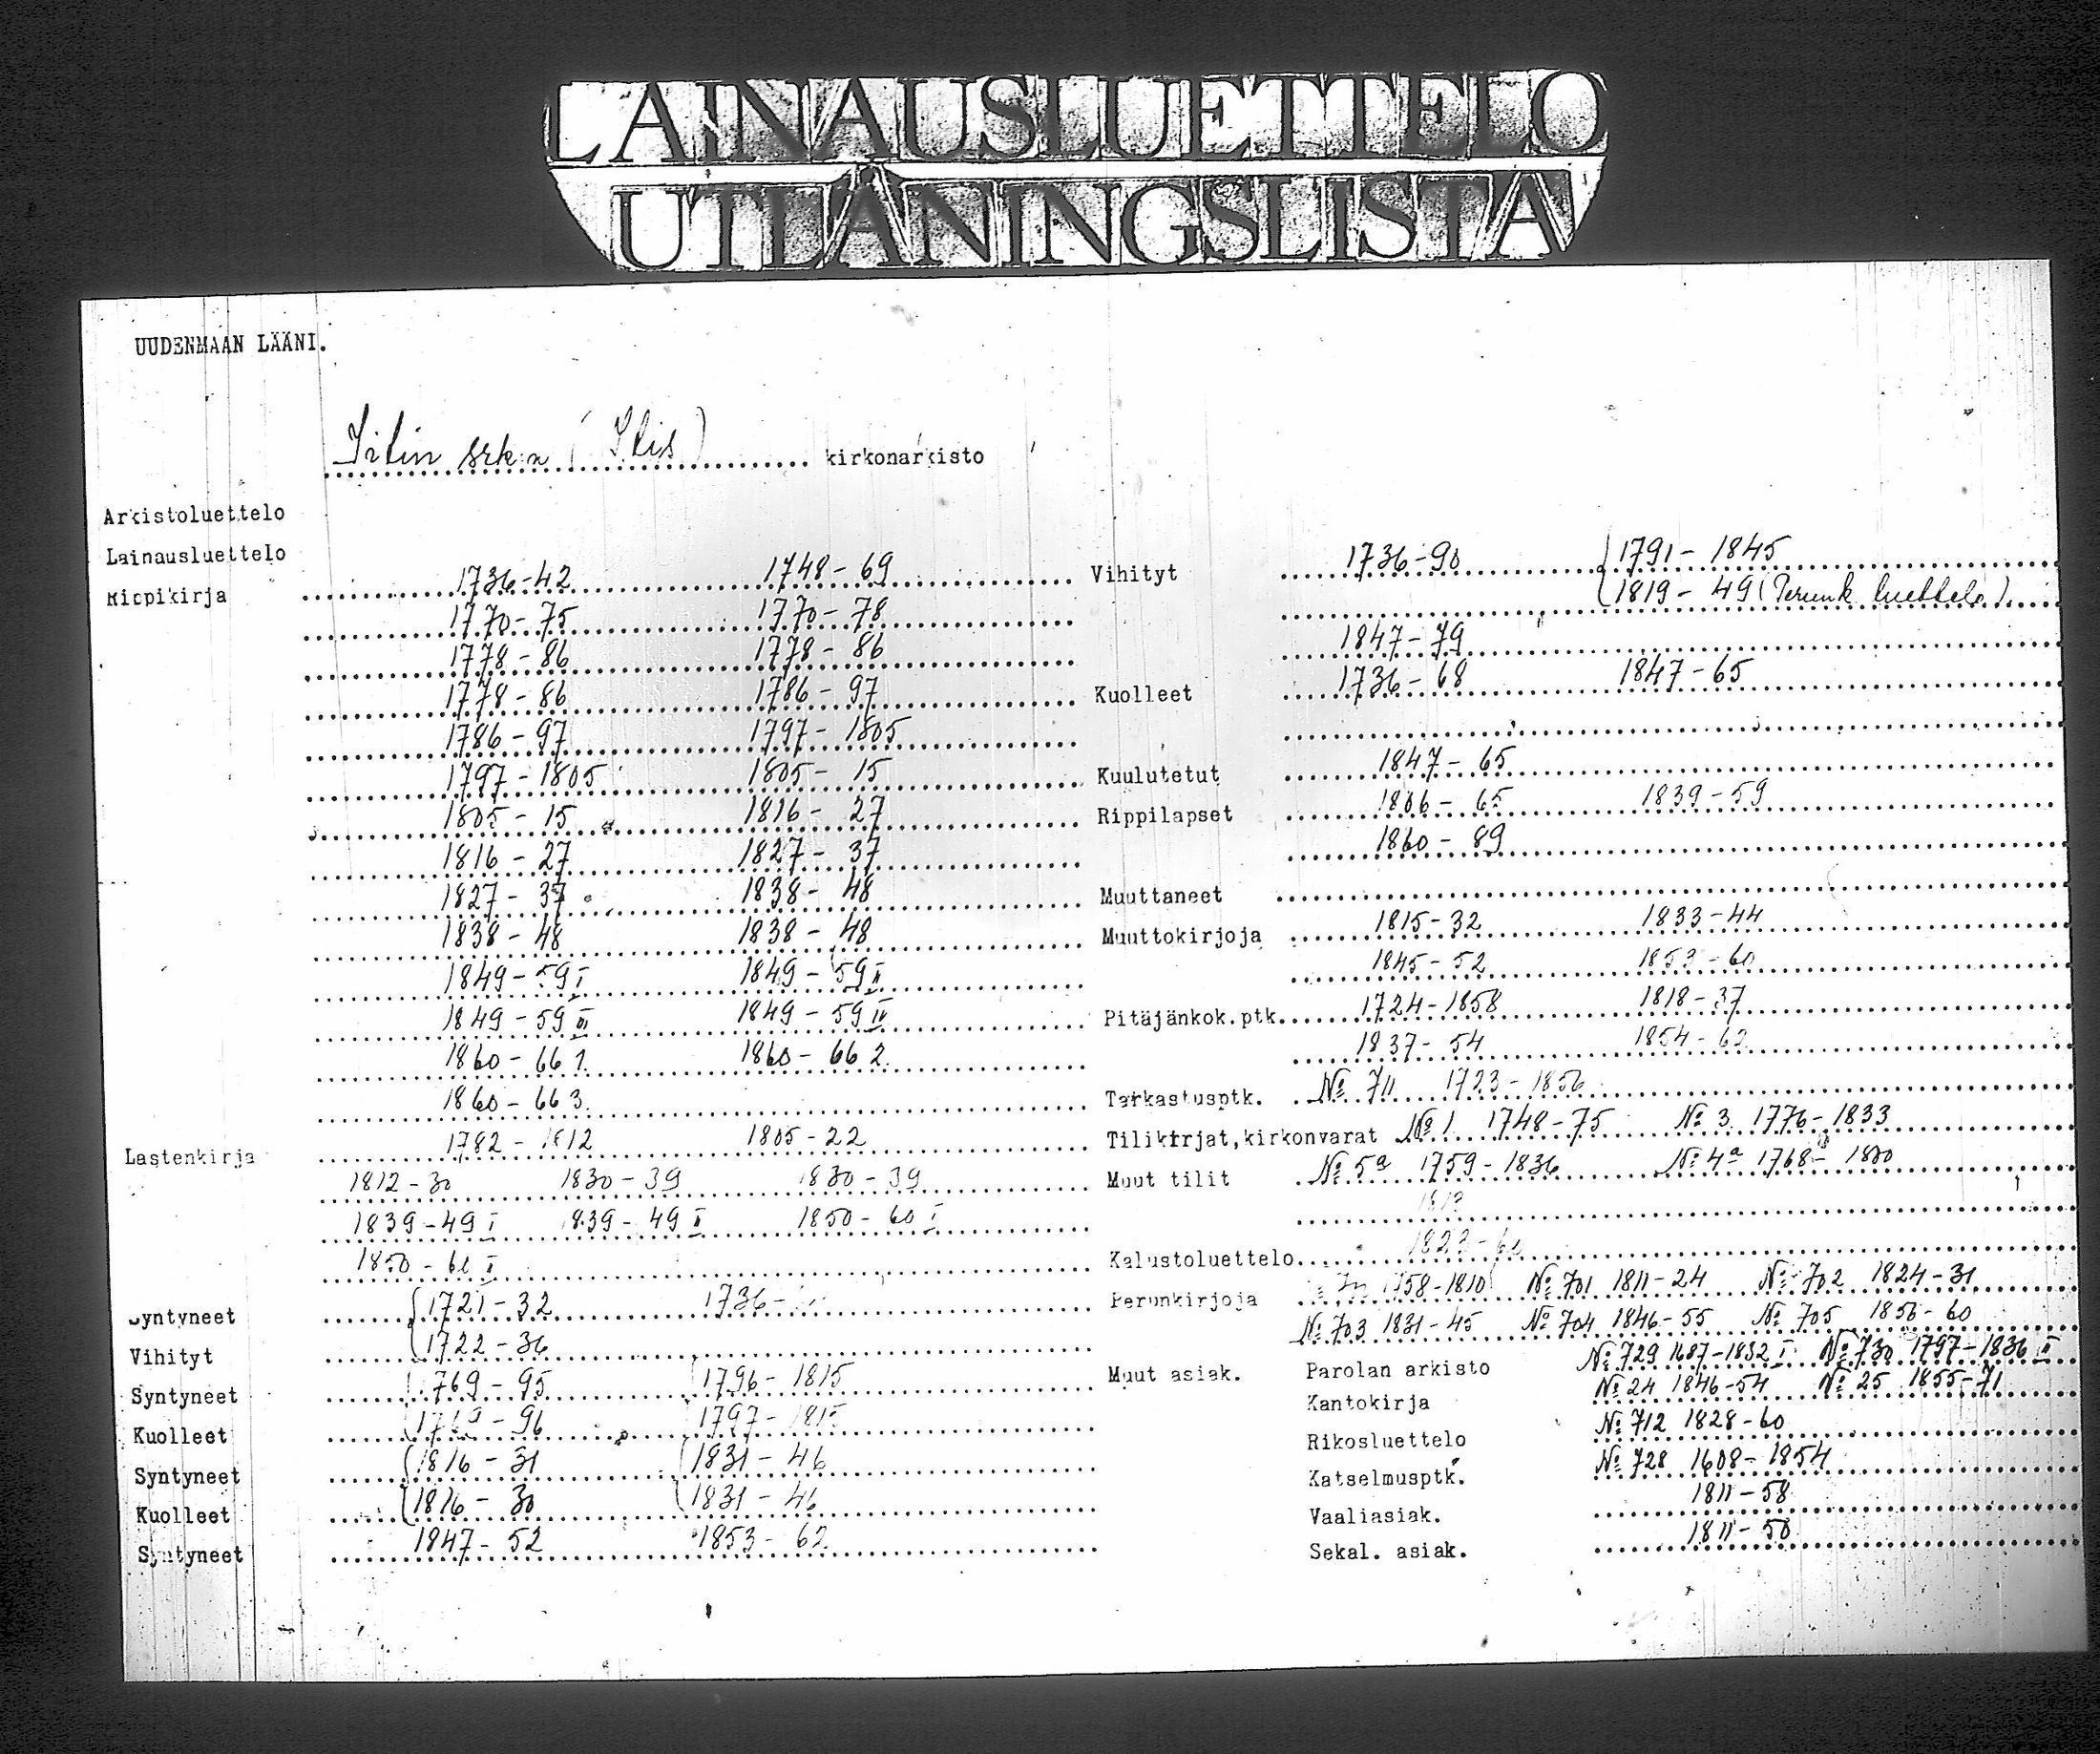 LAINAUSLUETTELO
UTLÅNINGSLISTA
UUDENMAAN LÄÄNI.
Iitin srk:n (Itis) kirkonarkisto
Arkistoluettelo
Lainausluettelo
Rippikirja 1736-42 1748-69
1770-75 1770-78
1778-86 1778-86
1778-86 1786-97
1786-97 1797-1805
1797-1805 1805-15
1805-15 1816-27
1816-27 1827-37
1827-37 1838-48
1838-48 1838-48
1849-59 I 1849-59 II
1849-59 III 1849-59 IV
1860-66 1. 1860-66 2.
1860-66 3.
Lastenkirja 1782-1812 1805-22
1812-30 1830-39 1830-39
1839-49 I 1839-49 II 1850-60 I
1850-60 II
Syntyneet 1721-32 1736-
Vihityt 1722-36
Syntyneet 1769-95 1796-1815
Kuolleet 1769-96 1797-1815
Syntyneet 1816-31 1831-46
Kuolleet 1816-30 1831-46
Syntyneet 1847-52 1853-62
Vihityt 1736-90 1791-1845
1819-49 (Perunk. luettelo)
1847-79
Kuolleet 1736-68 1847-65
Kuulutetut 1847-65
Rippilapset 1806-65 1839-59
1860-89
Muuttaneet
Muuttokirjoja 1815-32 1833-44
1845-52 1853-60
Pitäjänkok.ptk. 1724-1858 1818-37
1837-54 1854-62
Tarkastusptk. No 711 1723-1856
Tilikirjat,kirkonvarat No 1 1748-75 No 3 1776-1833
Muut tilit No 5a 1759-1836 No 4a 1768-1800
Kalustoluettelo
Perunkirjoja 1758-1810 No 701 1811-24 No 702 1824-31
No 703 1831-45 No 704 1846-55 No 705 1856-60
Muut asiak. Parolan arkisto No 729 1687-1832 I No 730 1797-1836 II
Kantokirja No 24 1846-54 No 25 1855-71
Rikosluettelo No 712 1828-60
Katselmusptk. No 728 1608-1854
Vaaliasiak. 1811-58
Sekal. asiak. 1811-50